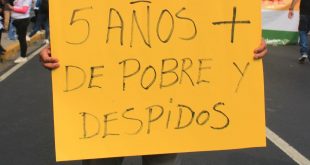 5 AÑOS +
DE POBRE Y
DESPIDOS